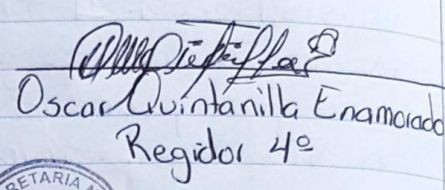 Oscar Quintanilla Enamorado
Regidor 4º
RETARIA M